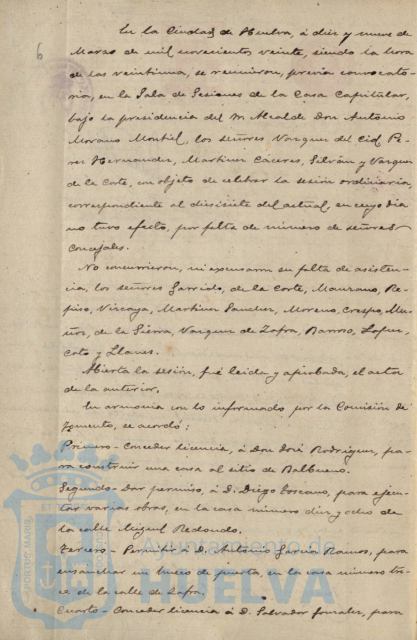 6
En la Ciudad de Huelva, á diez y nueve de
Marzo de mil novecientos veinte, siendo la hora
de las veintiuna, se reunieron, previa convocato-
ria, en la Sala de Sesiones de la Casa Capitular,
bajo la presidencia del Sr. Alcalde Don Antonio
Morano Montiel, los señores Vazquez del Cid, Pe-
rez Hernandez, Martinez Cáceres, Silván y Vazquez
de la Corte, con objeto de celebrar la sesión ordinaria
correspondiente al diesisiete del actual, en cuyo dia
no tuvo efecto, por falta de número de señores
Concejales.
No concurrieron, ni excusaron su falta de asisten-
cia, los señores Garrido, de la Corte, Manzano, Re-
piso, Vizcaya, Martinez Sanchez, Moreno, Crespo, Mu-
ñoz, de la Sierra, Vazquez de Zafra, Barroso, Lopez
Coto y Llanes.
Abierta la sesión, fué leida y aprobada, el acta
de la anterior.
En armonia con lo informado por la Comisión de
Fomento, se acordó:
Primero.- Conceder licencia, á Don José Rodriguez, pa-
ra construir una casa al sitio de Balbueno.
Segundo.- Dar permiso, á D. Diego Toscano, para ejecu-
tar varias obras, en la casa número diez y ocho de
la calle Miguel Redondo.
Tercero.- Permitir á D. Antonio Garcia Ramos, para
ensanchar un hueco de puerta, en la casa número tre-
ce de la calle de Zafra.
Cuarto.- Conceder licencia á D. Salvador Gonzalez, para
PORTUS MARIS
Ayuntamiento de
HUELVA